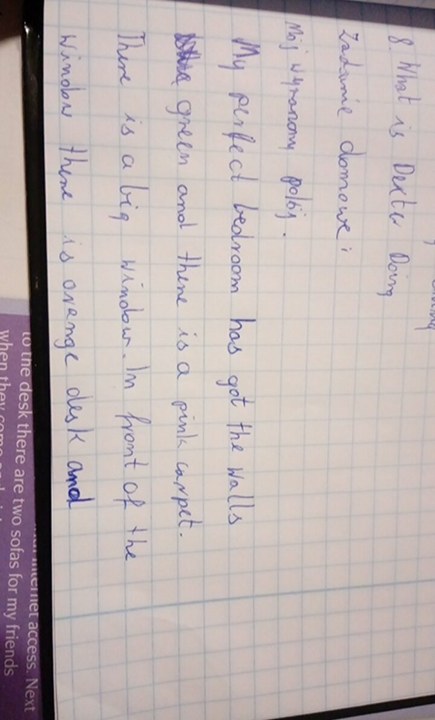 8. What is Dexter Doing
Zadanie domowe:
Mój wymarzony pokój.
My perfect bedroom has got the walls
green and there is a pink carpet.
There is a big window. In front of the
window there is orange desk and
internet access. Next
to the desk there are two sofas for my friends
when they come